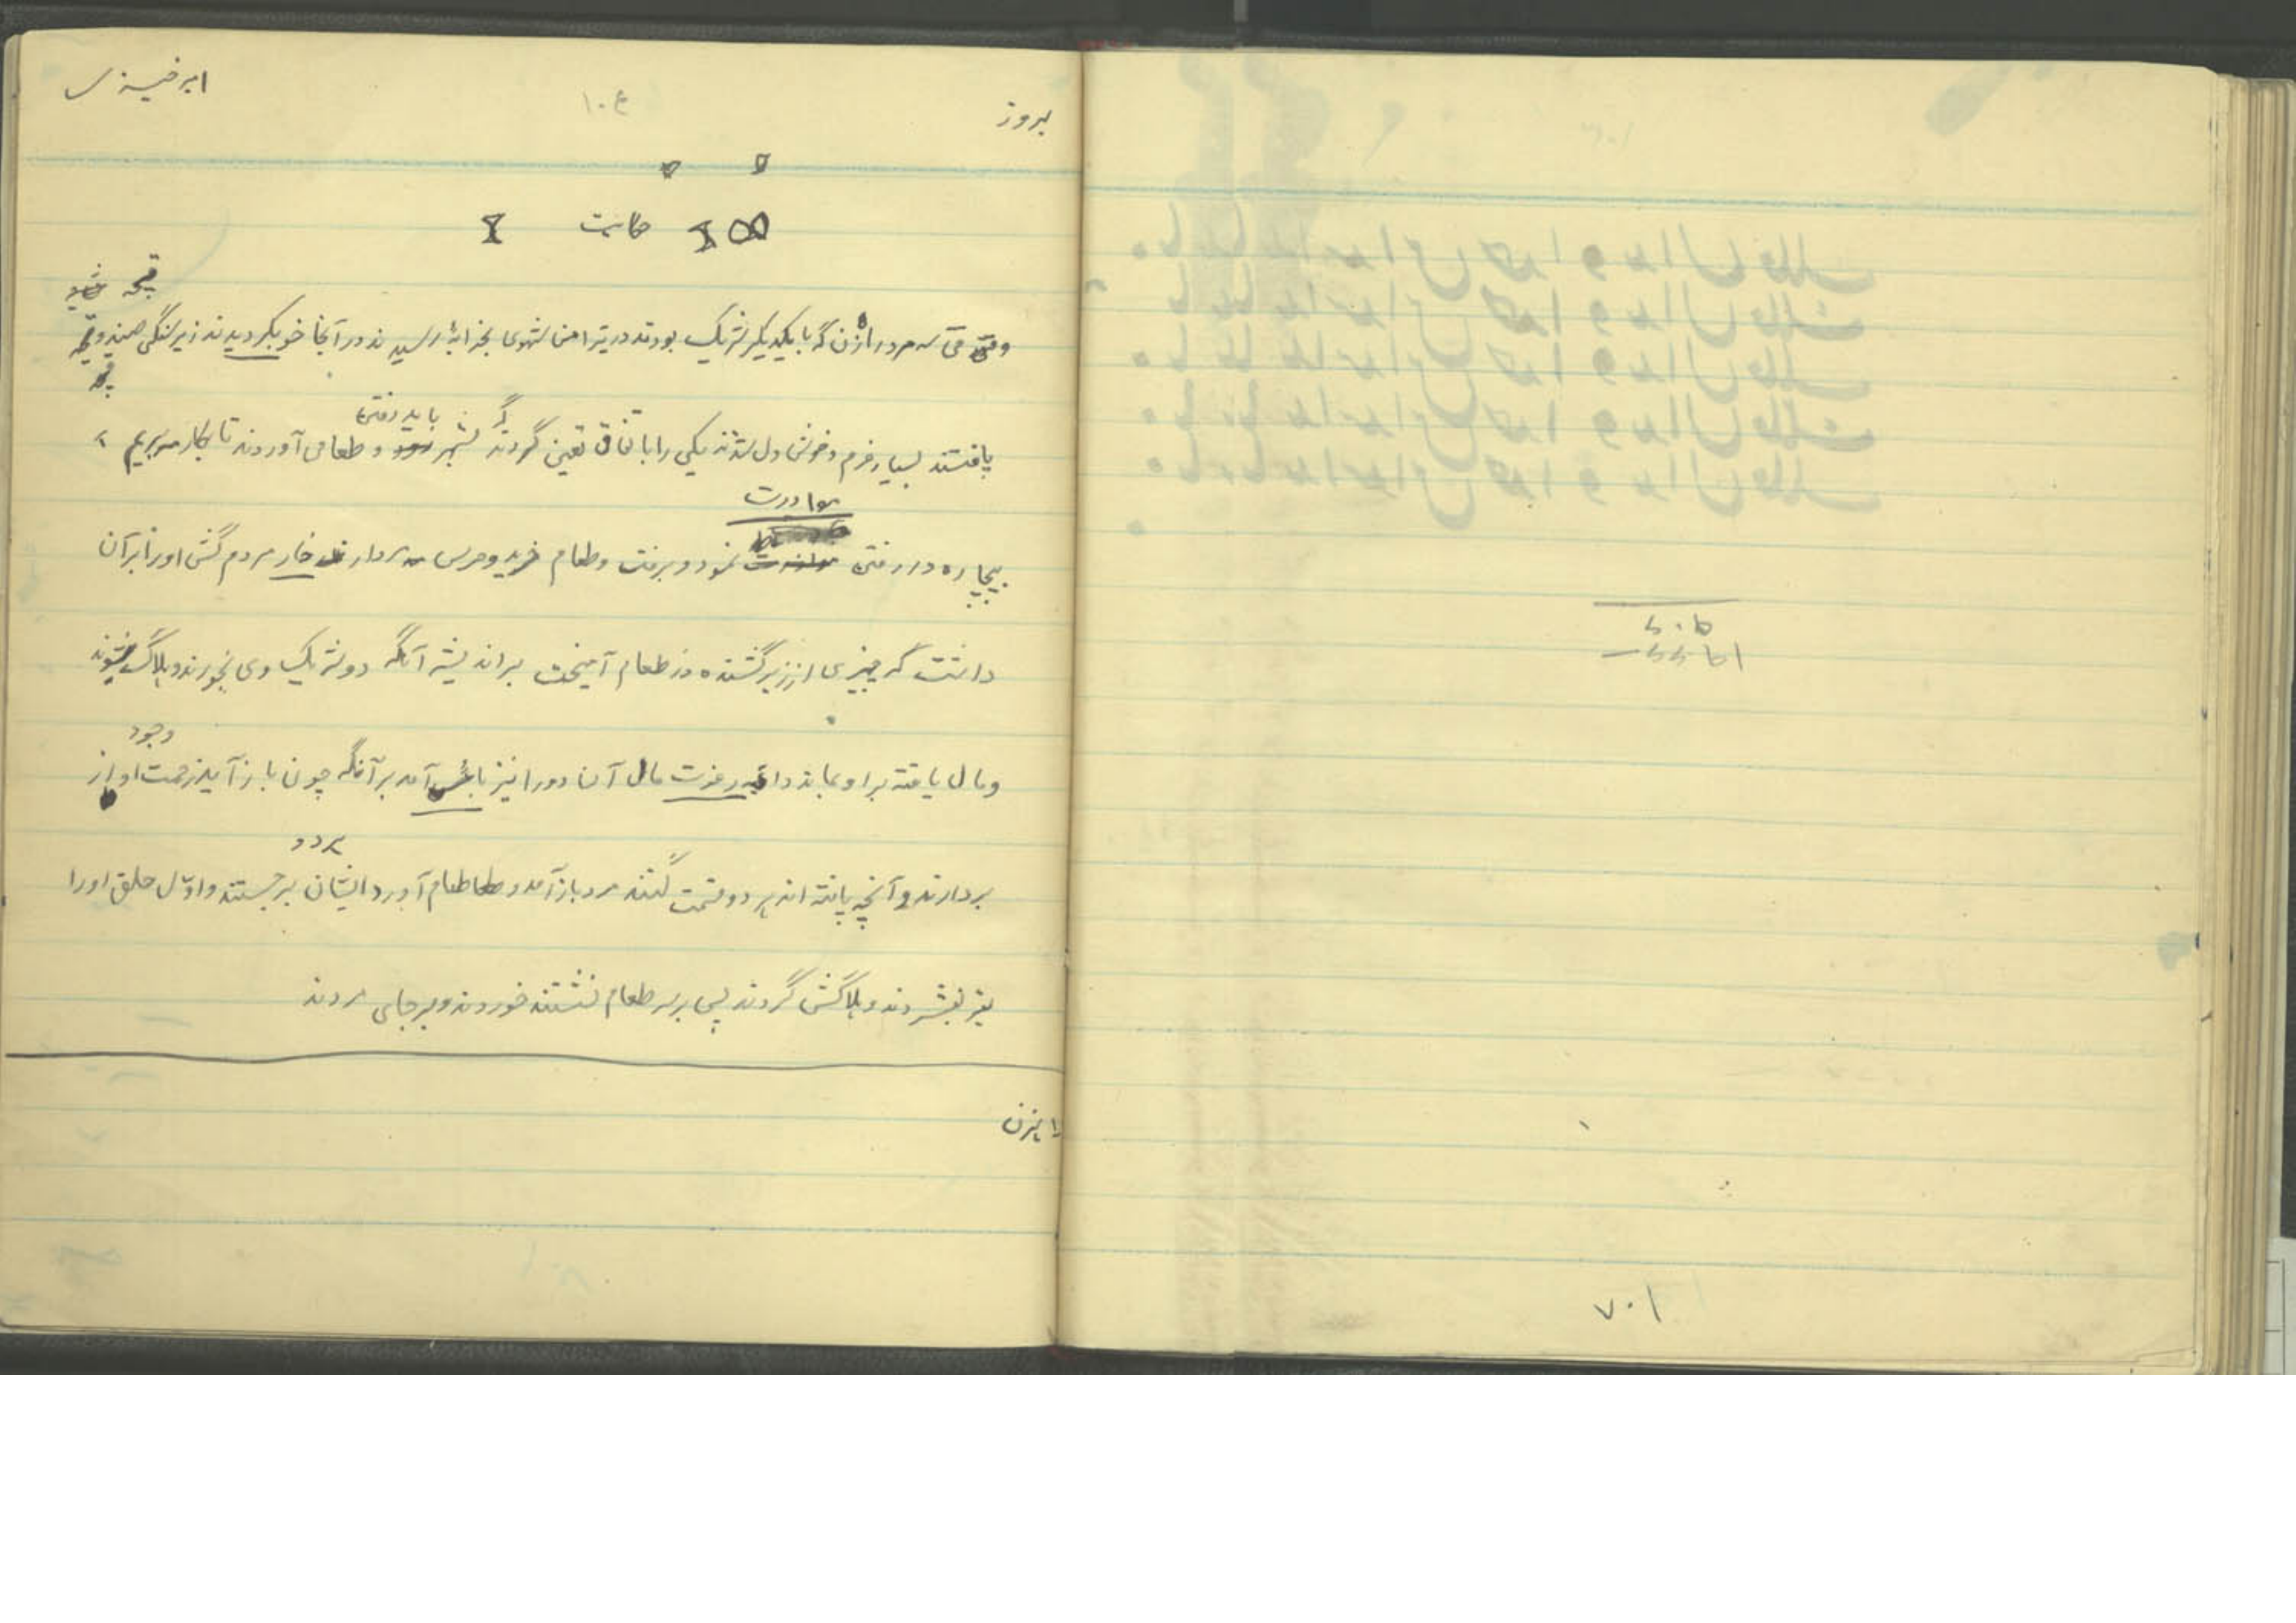 بروز
۱۰۶
حکایت
وقتی سه مرد راهزن که با یکدیگر شریک بودند در پیرامن شهری بخرابهٔ رسیدند در آنجا خوبکردیدند زیر سنگی صندوقچه
یافتند بسیار خرم و خوش دل شدند یکی را باتفاق تعین کردند که بشهر باید رفتن و طعامی آوردند تا بکار مبریم
مبادرت
بیچاره در رفتن نمود و برفت و طعام خرید و حرص مردار خار مردم کش اورا بر آن
داشت که چیزی از زیر کشنده در طعام آمیخت بر اندیشه آنکه دو شریک وی بخورند و هلاک شوند
وجود
و مال یافته بر او بماند داعیه رغبت مال آن دورا نیز باعث آمد بر آنکه چون باز آید زحمت او از
هر دو
بردارند و آنچه یافته اند هر دو قسمت کنند مرد باز آمد و طعام آورد ایشان برجستند و اوّل حلق اورا
نیز بفشردند و هلاکش کردند پس بر سر طعام نشستند خوردند و بر جای مردند
راهزن
۷۰۱